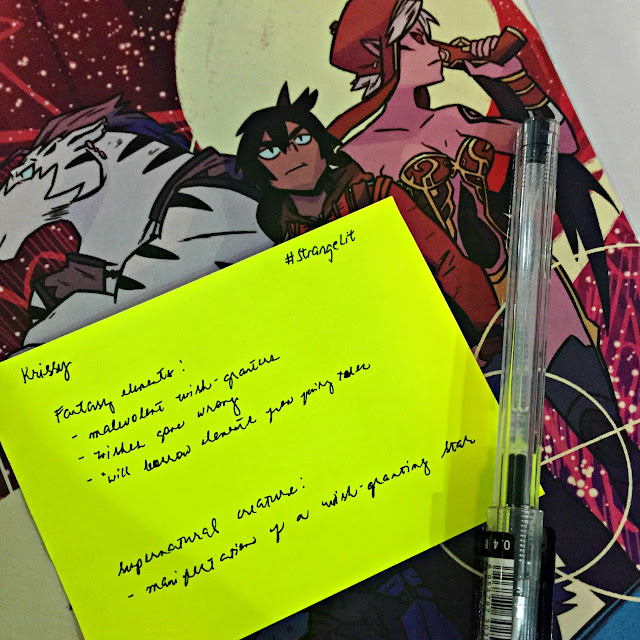 #StrangeLit
Krissy
Fantasy elements:
- malevolent wish-granter
- wishes gone wrong
- *will borrow elements from
supernatural creature:
- manifestation of a wish-granting star
0.4